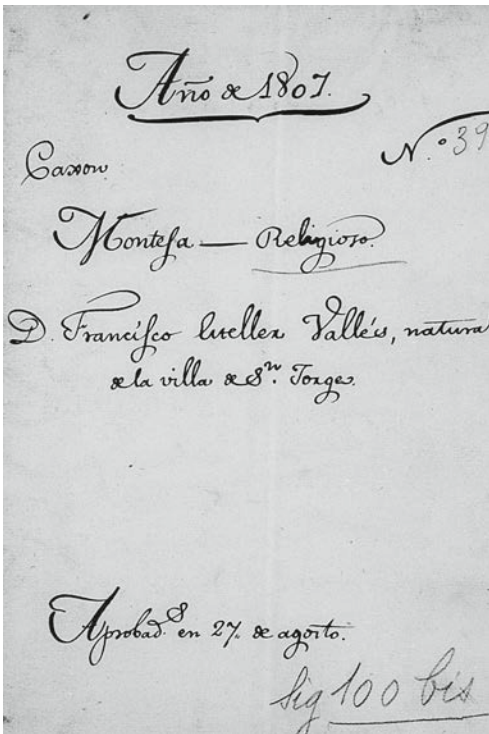 Año de 1807.
N.º 39
Caxon
Montesa — Religioso.
D. Francisco Vallés, natural
de la villa de Sn. Jorge.
Aprobads en 27. de agosto.
Sig 100 bis